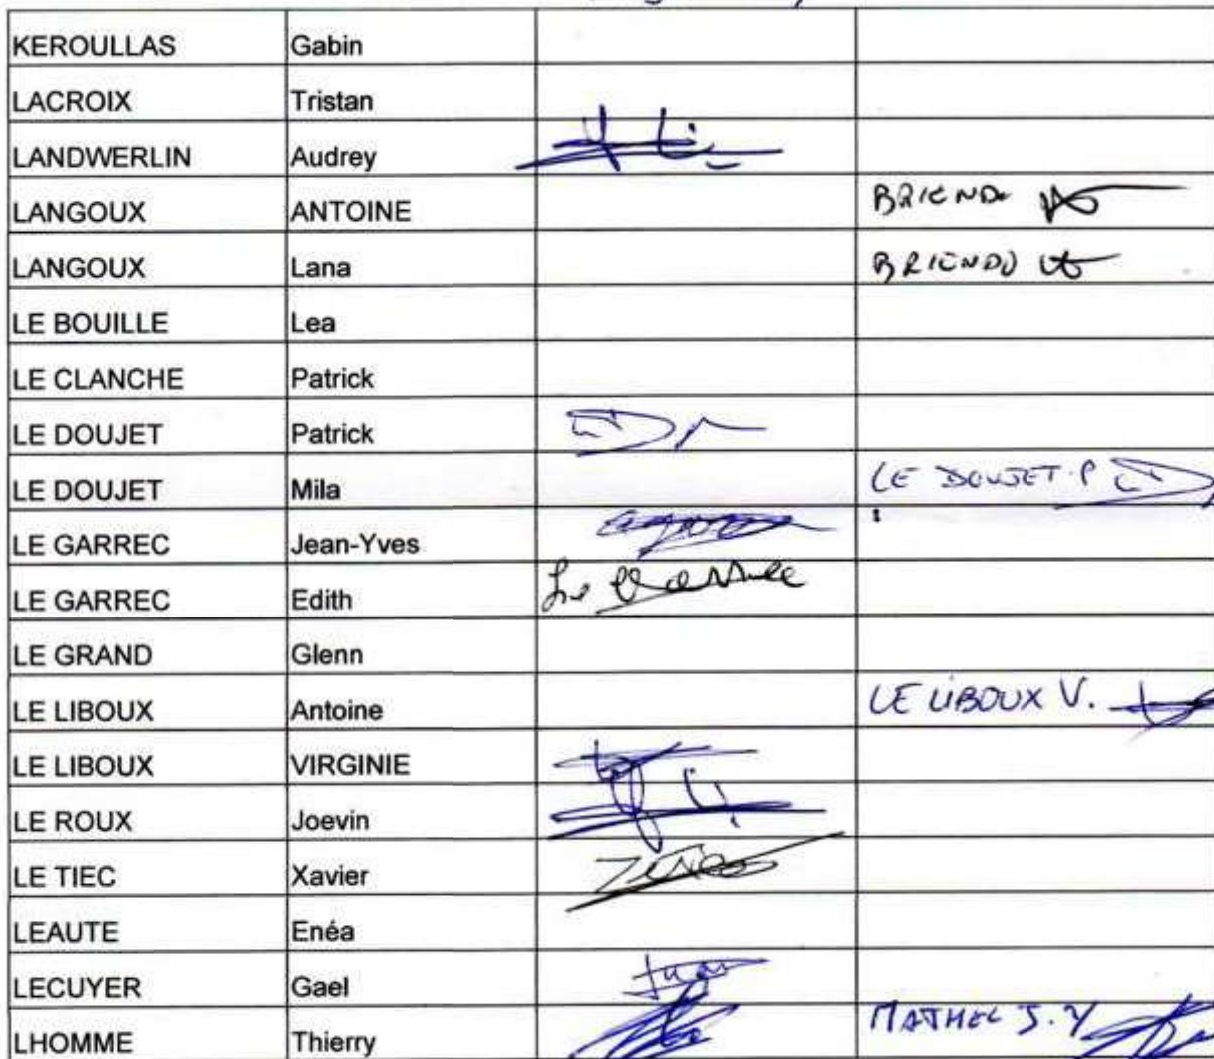 KEROULLAS Gabin
LACROIX Tristan
LANDWERLIN Audrey
LANGOUX ANTOINE BRIEND
LANGOUX Lana BRIENDO
LE BOUILLE Lea
LE CLANCHE Patrick
LE DOUJET Patrick
LE DOUJET Mila LE DOUJET.P
LE GARREC Jean-Yves
LE GARREC Edith
LE GRAND Glenn
LE LIBOUX Antoine LE LIBOUX V.
LE LIBOUX VIRGINIE
LE ROUX Joevin
LE TIEC Xavier
LEAUTE Enéa
LECUYER Gael
LHOMME Thierry MATHEL J.Y